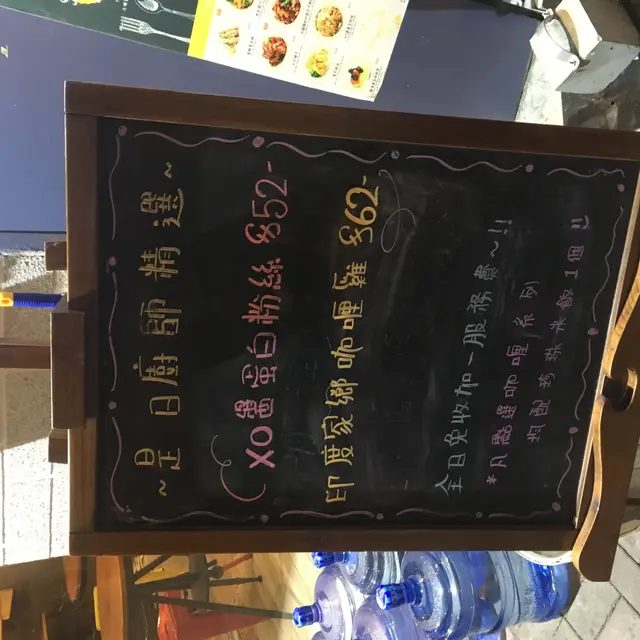 ~是日廚師精選~
XO醬蛋白粉絲 $52-
印度家鄉咖喱雞 $62-
全日免收加一服務費~!!
*凡選咖喱系列
均配1個!!